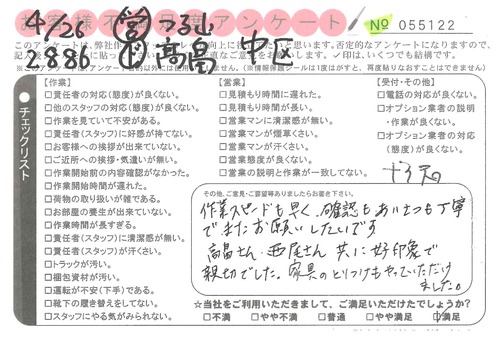 お客様不満度アンケート
4/26 営 つる山
2886 ±高畠 中区
№ 055122
このアンケートは、
【作業】
□責任者の対応(態度)が良くない。
□他のスタッフの対応(態度)が良くない。
□作業を見ていて不安がある。
□責任者(スタッフ)に好感が持てない。
□お客様への挨拶が出来ていない。
□ご近所への挨拶・気遣いが無い。
□作業開始前の内容確認がなかった。
□作業開始時間が遅れた。
□荷物の取り扱いが雑である。
□お部屋の養生が出来ていない。
□作業時間が長すぎる。
□責任者(スタッフ)に清潔感が無い。
□責任者(スタッフ)が汗くさい。
□トラックが汚い。
□梱包資材が汚い。
□運転が不安(下手)である。
□靴下の履き替えをしてない。
□スタッフにやる気がみられない。
チェックリスト
【営業】
□見積もり時間に遅れた。
□見積もり時間が長い。
□営業マンに清潔感が無い。
□営業マンが煙草くさい。
□営業マンが汗くさい。
□営業態度が良くない。
□営業の説明と作業が一致してない。
【受付・その他】
□電話の対応が良くない。
□オプション業者の説明
・作業が良くない。
□オプション業者の対応
(態度)が良くない。
その他、ご意見・ご要望等ありましたらお書き下さい。
作業スピードも早く、確認もあいさつも丁寧
でまたお願いしたいです
高畠さん・西尾さん 共に好印象で
親切でした。家具のとりつけもやっていただけ
ました。
☆当社をご利用いただきまして、ご満足いただけたでしょうか?
□不満 □やや不満 □普通 □やや満足 □満足